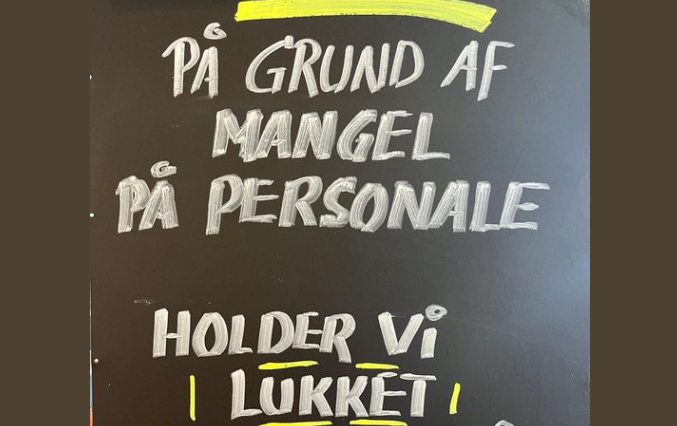 PÅ GRUND AF
MANGEL
PÅ PERSONALE
HOLDER Vi
LUKKET